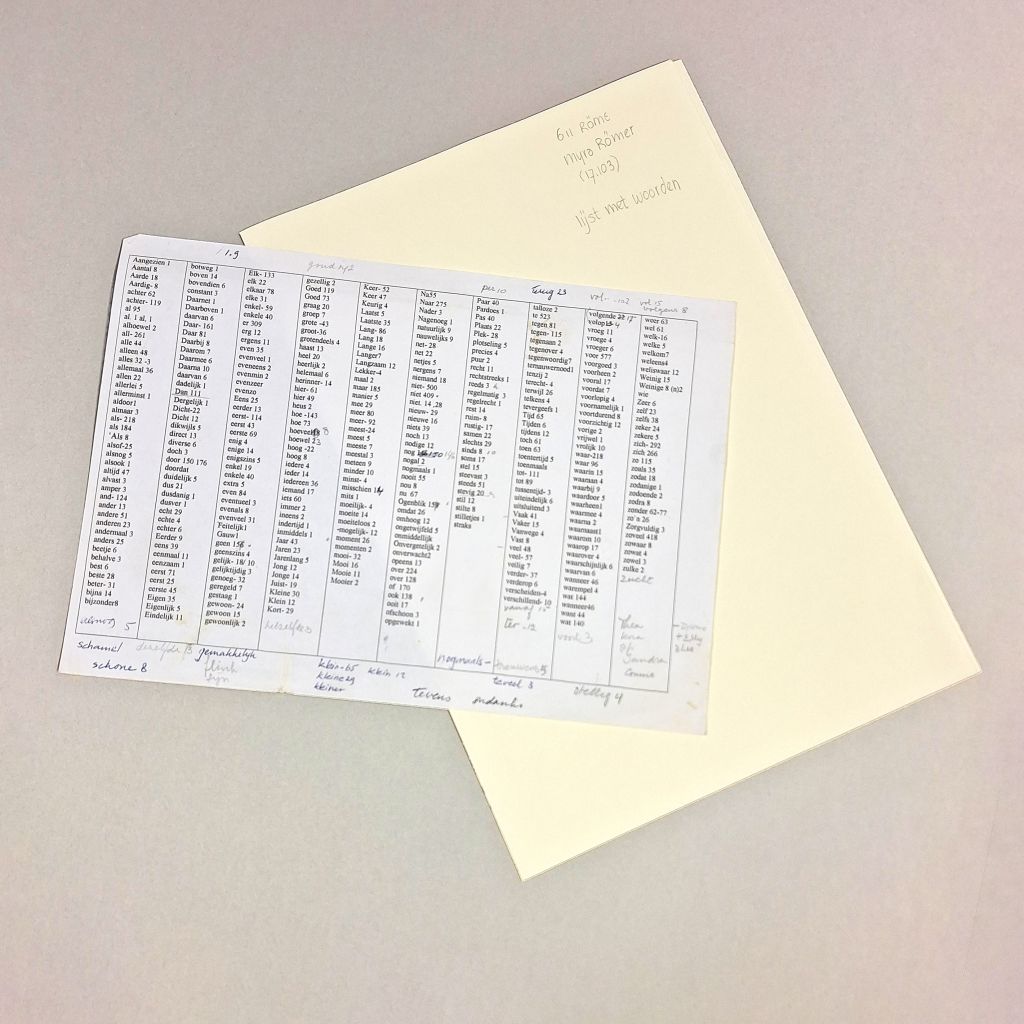 611 RÖME
Myra Römer
(17.103)
lijst met woorden
per 10
Terug 23
vol 15
Aangezien 1
Aantal 8
Aarde 18
Aardig- 8
achter 62
achter- 119
al 95
al. 1 al, 1
alhoewel 2
all- 261
alle 44
alleen 48
alles 32 -3
allemaal 36
allen 22
allerlei 5
allerminst 1
aldoor1
almaar 3
als- 218
als 184
'Als 8
alsof-25
alsnog 5
alsook 1
altijd 47
alvast 3
amper 3
and- 124
ander 13
andere 51
anderen 23
andermaal 3
anders 25
beetje 6
behalve 3
best 6
beste 28
beter- 31
bijna 14
bijzonder8
botweg 1
boven 14
bovendien 6
constant 3
Daarnet 1
Daarboven 1
daarvan 6
Daar- 161
Daar 81
Daarbij 8
Daarom 7
Daarmee 6
Daarna 10
daarvan 6
dadelijk 1
Dan 111
Dergelijk 1
Dicht-22
Dicht 12
dikwijls 5
direct 13
diverse 6
doch 3
door 150 176
doordat
duidelijk 5
dus 21
dusdanig 1
dusver 1
echt 29
echte 4
echter 6
Eerder 9
eens 39
eenmaal 11
eenzaam 1
eerst 71
eerst 25
eerste 45
Eigen 35
Eigenlijk 5
Eindelijk 11
Elk- 133
elk 22
elkaar 78
elke 31
enkel- 59
enkele 40
er 309
erg 12
ergens 11
even 35
evenveel 1
eveneens 2
evenmin 2
evenzeer
evenzo
Eens 25
eerder 13
eerst- 114
eerst 43
eerste 69
enig 4
enige 14
enigszins 5
enkel 19
enkele 40
extra 5
even 84
eventueel 3
evenals 8
evenveel 31
Feitelijk1
Gauw1
geen 156
geenszins 4
gelijk- 18/ 10
gelijktijdig 3
genoeg- 32
geregeld 7
gestaag 1
gewoon- 24
gewoon 15
gewoonlijk 2
gezellig 2
Goed 119
Goed 73
graag 20
groep 7
grote -43
groot-36
grotendeels 4
haast 13
heel 20
heerlijk 2
helemaal 6
herinner- 14
hier- 61
hier 49
heus 2
hoe -143
hoe 73
hoeveel 8
hoewel 23
hoog -22
hoog 8
iedere 4
ieder 14
iedereen 36
iemand 17
iets 60
immer 2
ineens 2
indertijd 1
inmiddels 1
Jaar 43
Jaren 23
Jarenlang 5
Jong 12
Jonge 14
Juist- 19
Kleine 30
Klein 12
Kort- 29
Keer- 52
Keer 47
Keurig 4
Laatst 5
Laatste 35
Lang- 86
Lang 18
Lange 16
Langer7
Langzaam 12
Lekker-4
maal 2
maar 185
manier 5
mee 29
meer 80
meer- 92
meest-24
meest 5
meeste 7
meestal 3
meteen 9
minder 10
minst- 4
misschien 14
mits 1
moeilijk- 4
moeite 14
moeiteloos 2
-mogelijk- 12
moment 26
momenten 2
mooi- 32
Mooi 16
Mooie 11
Mooier 2
Na55
Naar 275
Nader 3
Nagenoeg 1
natuurlijk 9
nauwelijks 9
net- 28
net 22
netjes 5
nergens 7
niemand 18
niet- 500
niet 409
niet. 14 ,28
nieuw- 29
nieuwe 16
niets 39
noch 13
nodige 12
nogal 2
nogmaals 1
nooit 55
nou 8
nu 67
Ogenblik 15
omdat 26
omhoog 12
ongetwijfeld 5
onmiddellijk
Onvergetelijk 2
onverwacht2
opeens 13
over 224
over 128
of 170
ook 138
ooit 17
ofschoon 3
opgewekt 1
Paar 40
Pardoes 1
Pas 40
Plaats 22
Plek- 28
plotseling 5
precies 4
puur 2
recht 11
rechtstreeks 1
reeds 3
regelmatig 3
regelrecht 1
rest 14
ruim- 8
rustig- 17
samen 22
slechts 29
sinds 8 10
soms 17
stel 15
steevast 3
steeds 51
stevig 20
stil 12
stilte 8
stilletjes 1
straks
talloze 2
te 523
tegen 81
tegen- 115
tegenaan 2
tegenover 4
tegenwoordig7
ternauwernood1
tenzij 2
terecht- 4
terwijl 26
telkens 4
tevergeefs 1
Tijd 65
Tijden 6
tijdens 12
toch 61
toen 63
toentertijd 5
toenmaals
tot- 111
tot 89
tussentijd- 3
uiteindelijk 6
uitsluitend 3
Vaak 41
Vaker 15
Vanwege 4
Vast 8
veel 48
veel- 57
veilig 7
verder- 37
verderop 6
verscheiden-4
verschillend- 10
vanaf 10
ter -12
vroeg 11
vroege 4
vroeger 6
voor 577
voorgoed 3
voorheen 2
vooral 17
voordat 7
voorlopig 4
voornamelijk 1
voortdurend 8
voorzichtig 12
vorige 2
vrijwel 1
vrolijk 10
waar-218
waar 96
waarin 15
waaraan 4
waarbij 9
waardoor 5
waarheen1
waarmee 4
waarna 2
waarnaast1
waarom 10
waarop 17
waarover 4
waarschijnlijk 6
waarvan 6
wanneer 46
warempel 4
wat 144
wanneer46
want 44
wat 140
voorts 3
weer 63
wel 61
welk-16
welke 5
welkom7
weleens4
weliswaar 12
Weinig 15
Weinige 8 (n)2
wie
Zeer 6
zelf 23
zelfs 38
zeker 24
zekere 5
zich- 292
zich 266
zo 115
zoals 35
zodat 18
zodanige 1
zodoende 2
zodra 8
zonder 62-77
zo'n 26
Zorgvuldig 3
zoveel 418
zowaar 8
zowat 4
zowel 3
zulke 2
zucht
Sandra
schamel
schone 8
gemakkelijk
flink
fijn
klein-65
klein 12
kleine 29
kleiner
nogmaals-
trouwens 15
teveel 3
tevens
ondanks
stellig 4